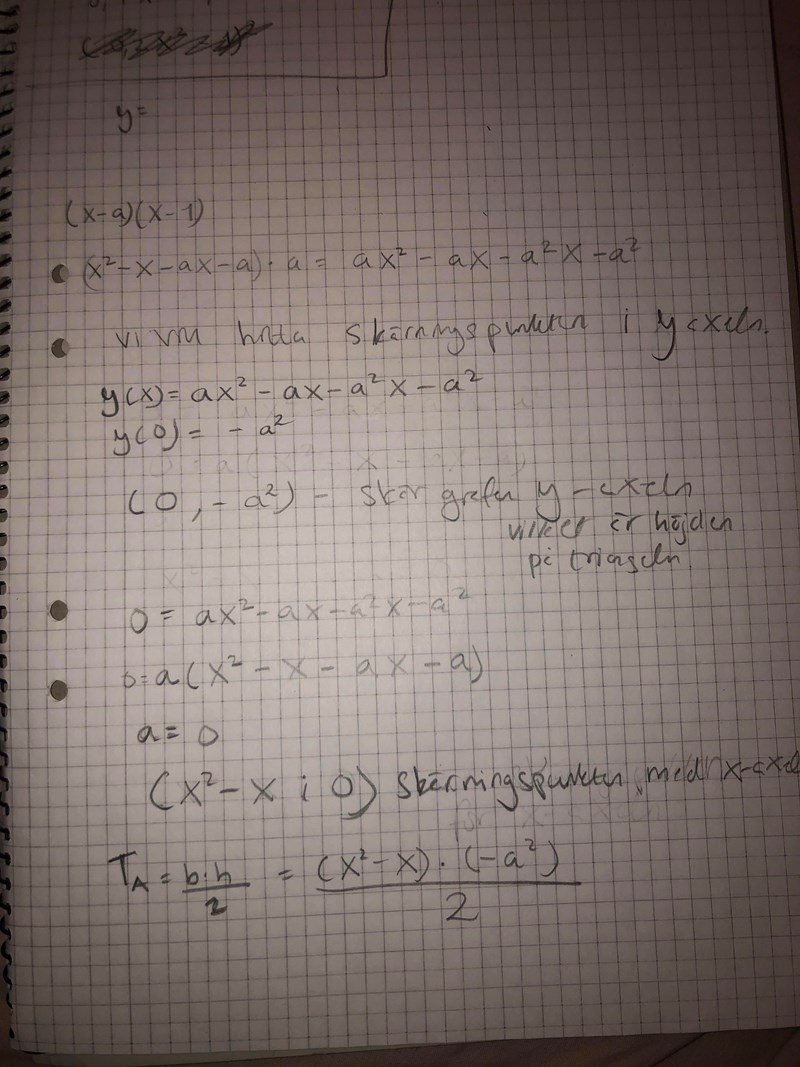 y=
(x-a)(x-1)
(x²-x-ax-a)·a = ax²-ax-a²x-a²
vi vill hitta skärningspunkten i y axeln.
y(x)=ax²-ax-a²x-a²
y(0)= -a²
(0,-a²) - skär grafen y-axeln
vilket är höjden
på triangeln
0 = ax²-ax-a²x-a²
0=a(x²-x-ax-a)
a=0
(x²-x ; 0) skärningspunkten med x-axeln
T_A = b·h/2 = (x²-x)·(-a²)/2